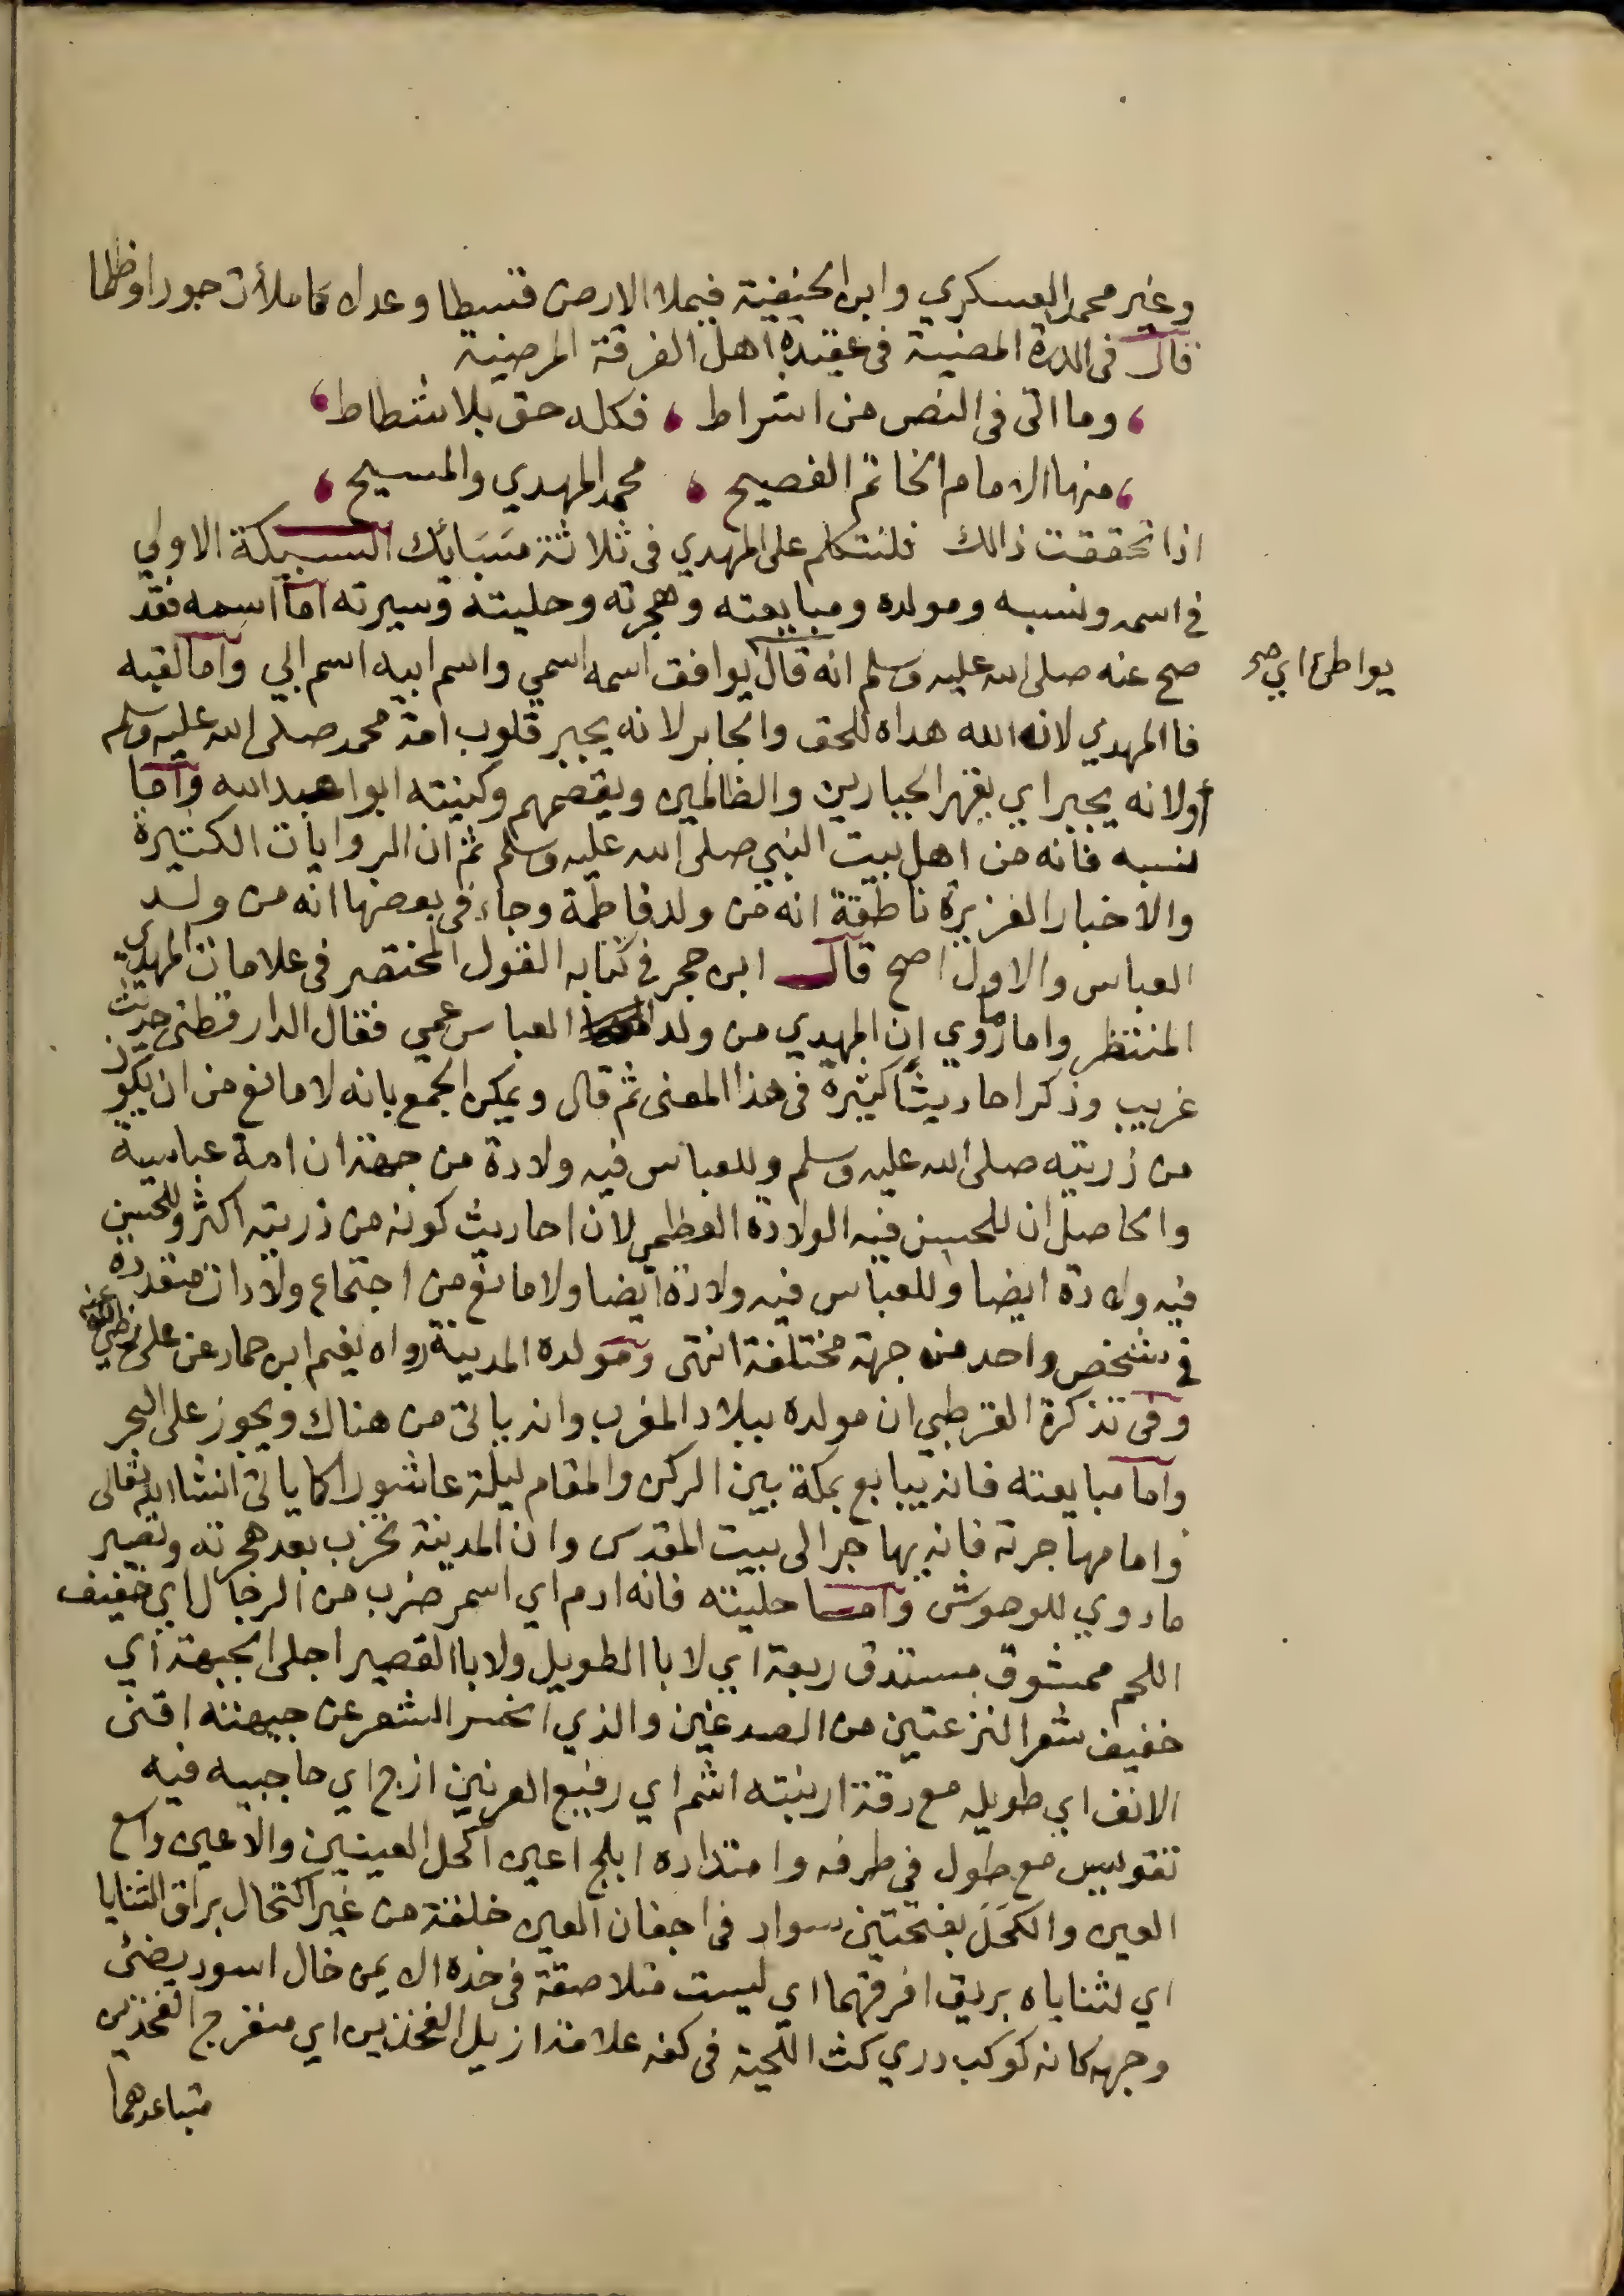 وغير محمد العسكري وابن الحنيفية فيملا الارض قسطا وعدلا كما ملأت جورا وظلما
قال في الدرة المضية في عقيدة اهل الفرقة المرضية
وما اتى في النص من اشراط ، فكله حق بلا شطاط ،
، منها الامام الخاتم الفصيح ، محمد المهدي والمسيح ،
اذا تحققت ذالك فلنتكلم على المهدي في ثلاثة سَبَائك السبيكة الاولي
في اسمه ونسبه ومولده ومبايعته وهجرته وحليته وسيرته اما اسمه فقد
صح عنه صلى الله عليه وسلم انه قال يوافق اسمه اسمي واسم ابيه اسم ابي واما لقبه
يواطئ اي صح
فا المهدي لانه الله هداه للحق والجابر لانه يجبر قلوب امة محمد صلى الله عليه وسلم
أولانه يجبر اي يقهر الجبارين والظالمين ويقصمهم وكنيته ابوا عبد الله واما
نسبه فانه من اهل بيت النبي صلى الله عليه وسلم ثم ان الروايات الكثيرة
والاخبار الغزيرة ناطقة انه من ولد فاطمة وجاء في بعضها انه من ولد
العباس والاول اصح قال ابن حجر في كتابه القول المختصر في علامات المهدي
المنتظر واما ما روي إن المهدي من ولد العباس عمي فقال الدارقطني حديث
غريب وذكر احاديثًا كثيرة في هذا المعنى ثم قال ويمكن الجمع بانه لا مانع من ان يكون
من زريته صلى الله عليه وسلم وللعباس فيه ولادة من جهة ان امه عباسية
والحاصل ان للحسن فيه الولادة العظمى لان احاديث كونه من زريته اكثر وللحسين
فيه ولادة ايضا وللعباس فيه ولادة ايضا ولا مانع من اجتماع ولادات متعدده
في شخص واحد من جهة مختلفة انتهى ومولده المدينة رواه نعيم ابن حماد عن علي رضي الله عنه
وفي تذكرة القرطبي ان مولده ببلاد المغرب وانه ياتي من هناك ويجوز على البحر
واما مبايعته فانه يبايع بمكة بين الركن والمقام ليلة عاشورا كما ياتى انشا الله تعالى
واما مهاجرته فانه يهاجر الى بيت المقدس وان المدينة تخرب بعد هجرته وتصير
ماروي للوحوش واما حليته فانه ادم اي اسمر ضرب من الرجال اي خفيف
اللحم ممشوق مستدق ربعة اي لا با الطويل ولا با القصير اجلى الجبهة اي
خفيف شعر النزعتين من الصدغين والذي انحسر الشعر عن جبهته اقنى
الانف اي طويله مع رقة ارنبته اشم اي رفيع العرنين ازج اي حاجبيه فيه
تقويس مع طول في طرفه وامتداده ابلج اعين اكحل العينين والاعين واسع
العين والكَحَلَ بفتحتين سواد في اجفان العين خلقة من غير اكتحال براق الثنايا
اي لثناياه بريق افرقهما اي ليست متلاصقة في خده الايمن خال اسود يضئ
وجهه كانه كوكب دري كث اللحية في كفه علامة ازيل الفخذين اي منفرج الفخذين
متباعدهما